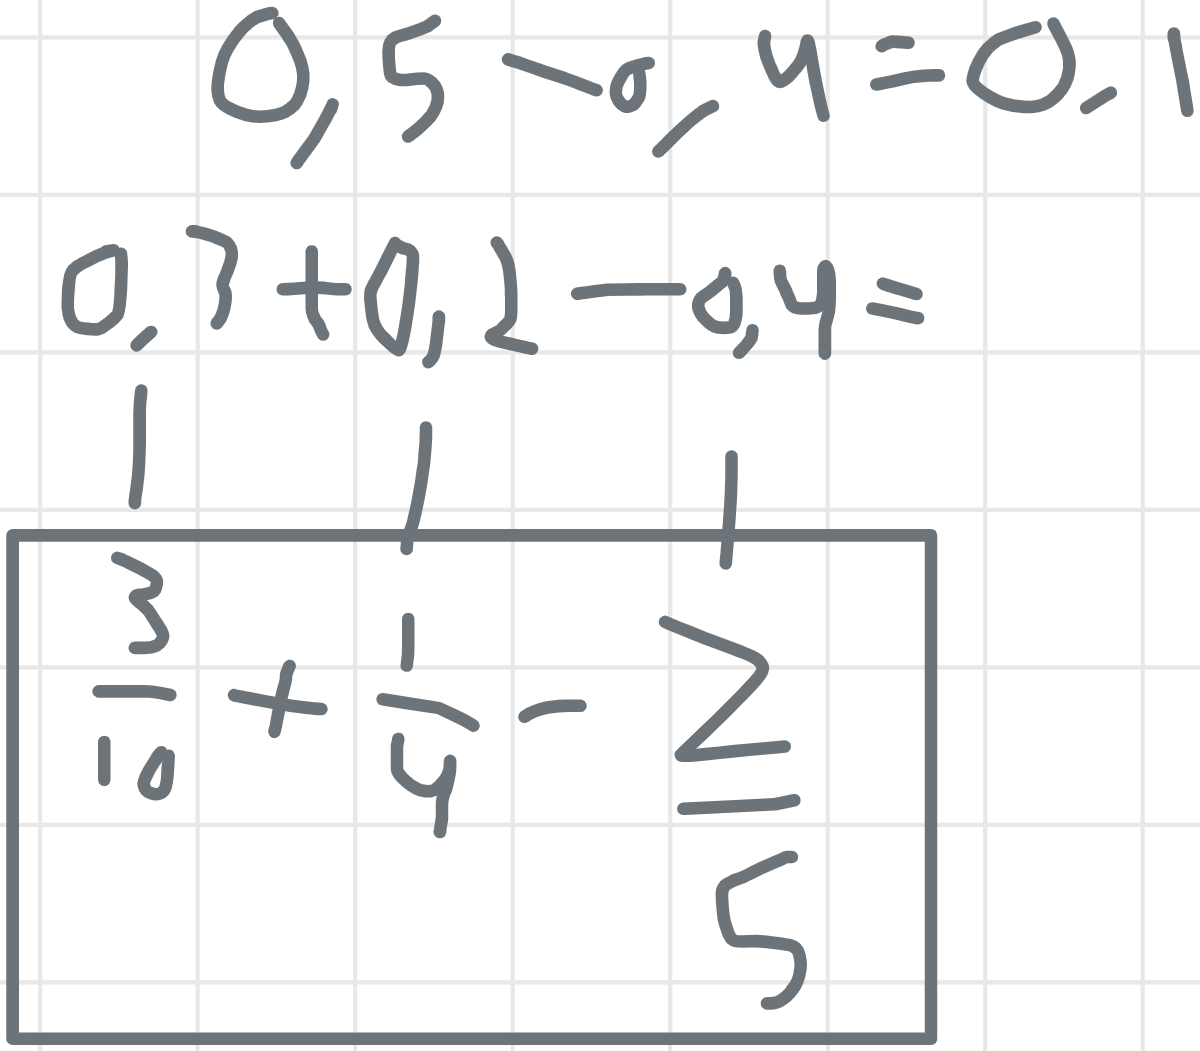 0,5-0,4=0,1
0,3+0,2-0,4=
3/10 + 1/4 - 2/5